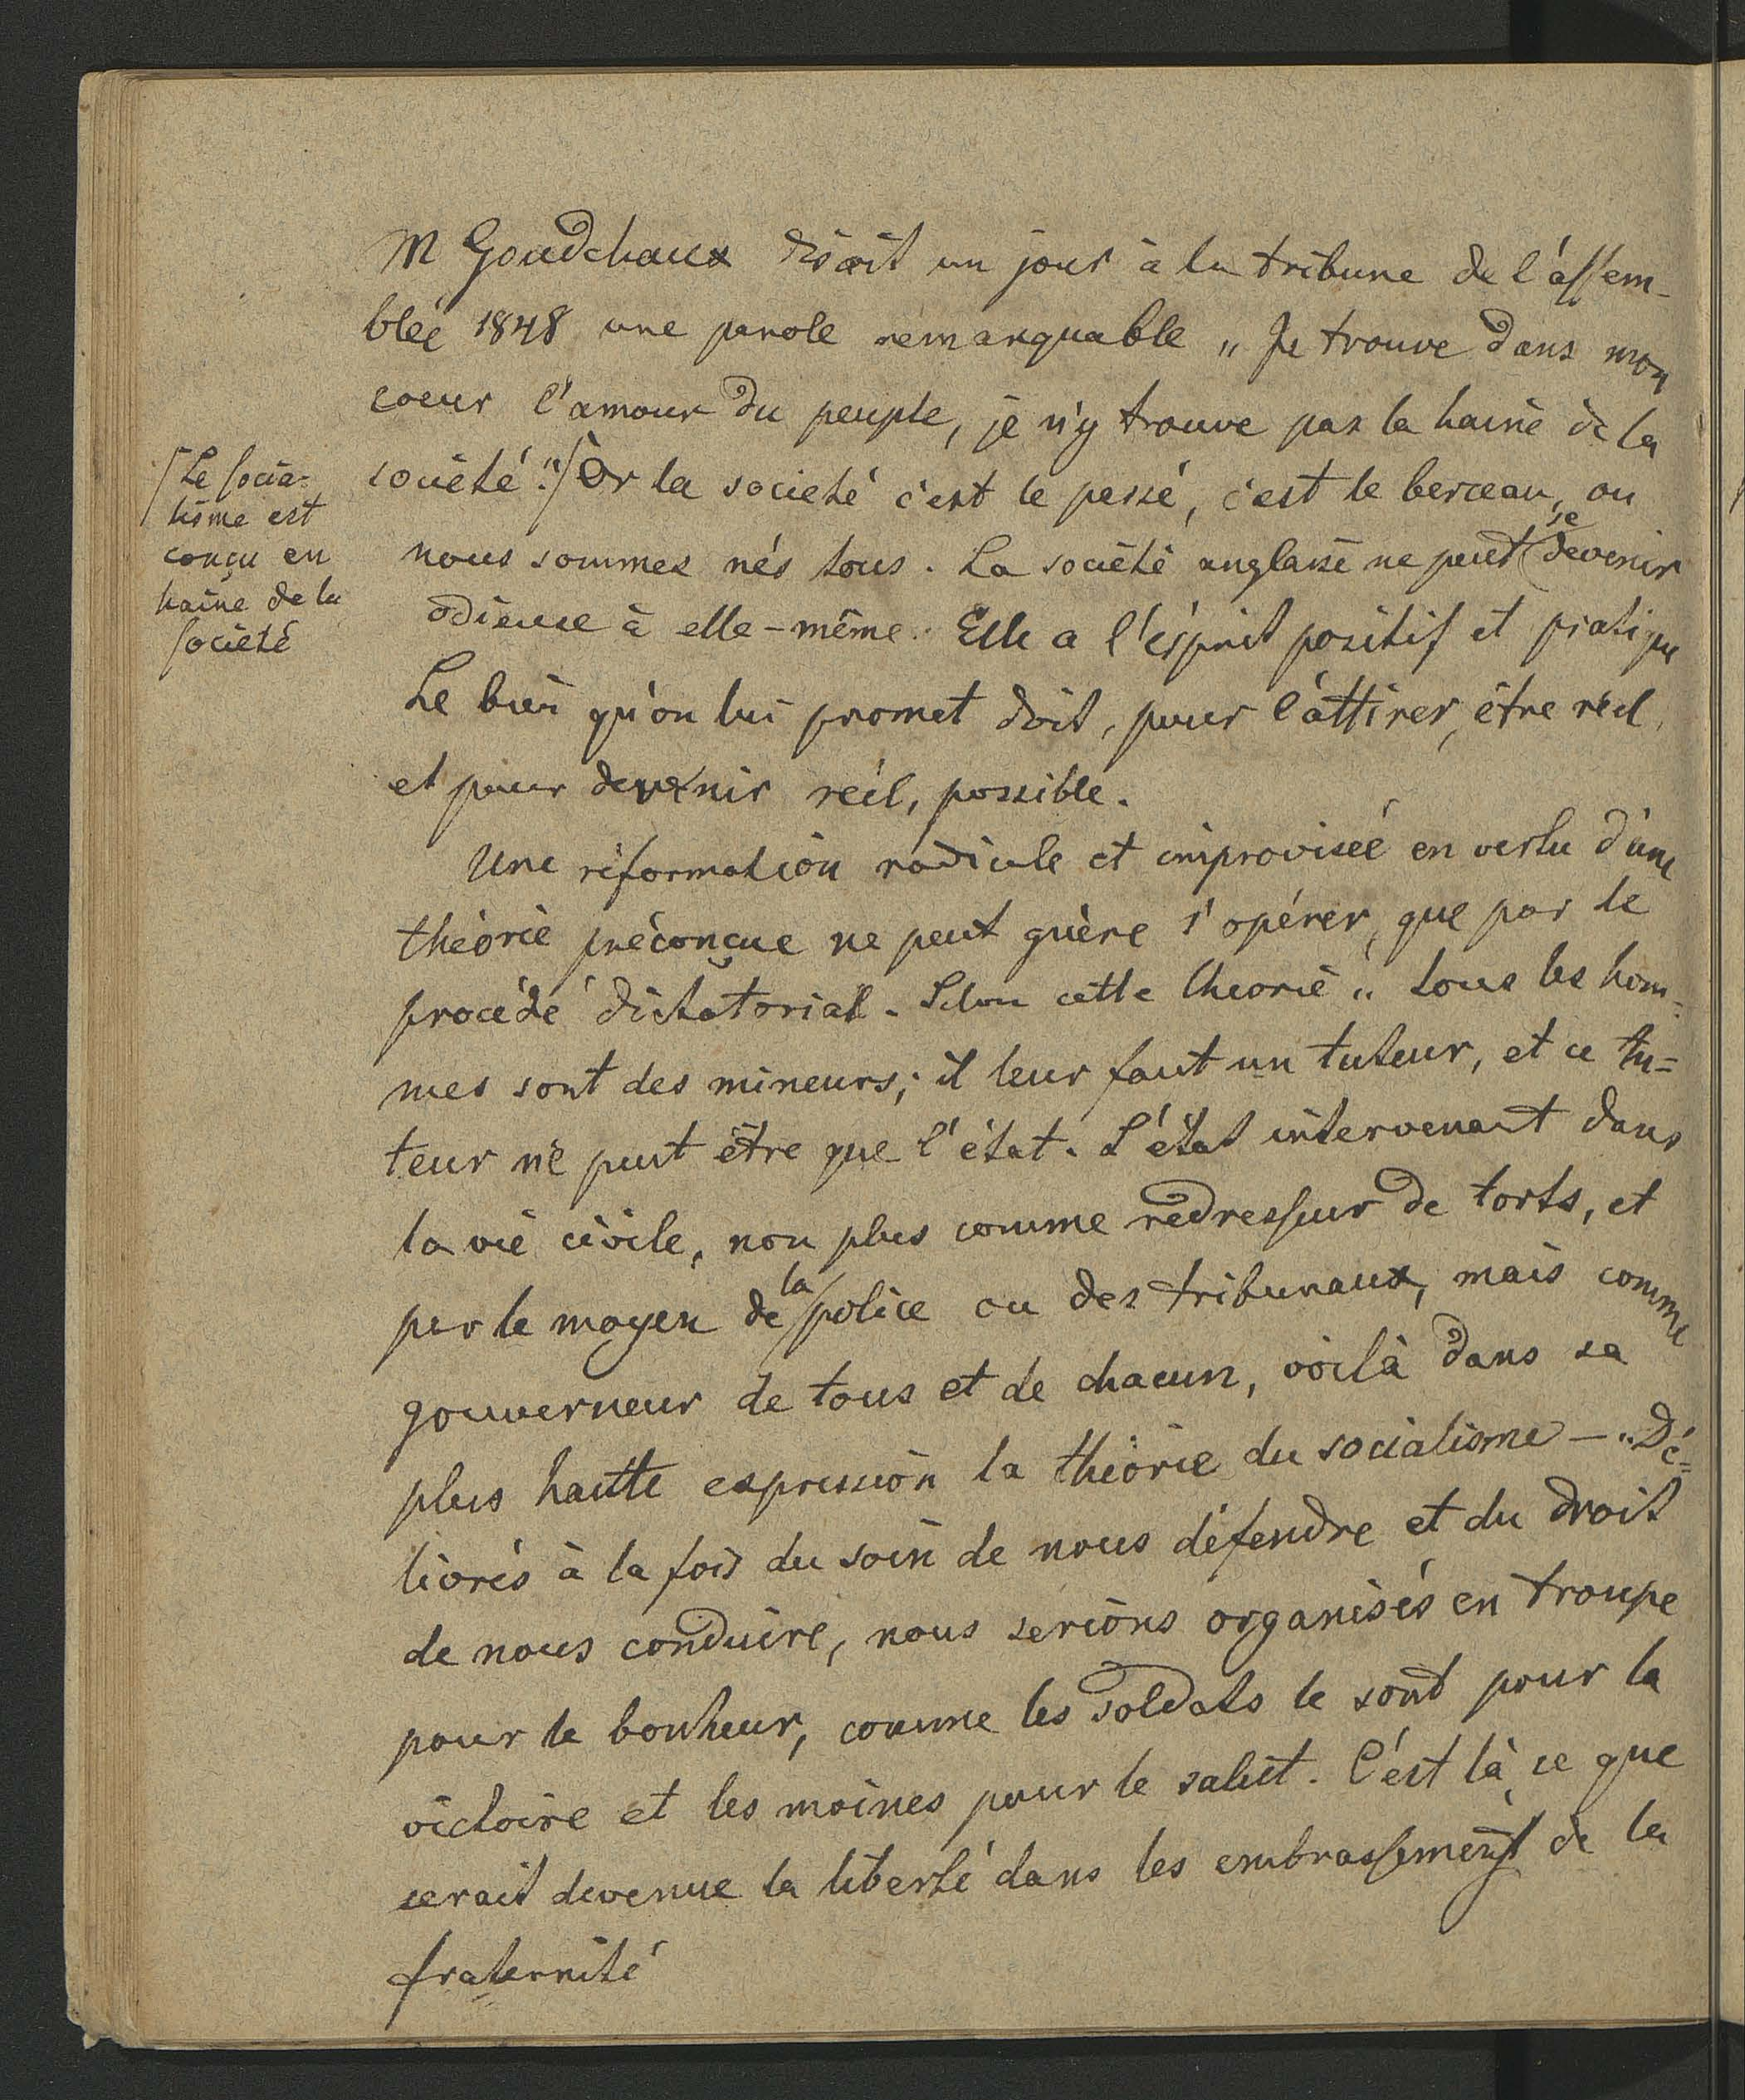 M Goudchaux disait un jour à la tribune de l'assem-
blée 1848 une parole remarquable „Je trouve dans mon
coeur l'amour du peuple, je n'y trouve pas la haine de la
societé."/ Or la societé c'est le passé, c'est le berceau, ou
/Le socia-
lisme est
conçu en
haine de la
societé
nous sommes nés tous. La societé anglaise ne peut se devenir
odieuse à elle-même. Elle a l'esprit positif et pratique
Le bien qu'on lui promet doit, pour l'attirer, être réel,
et pour devenir réel, possible.
Une réformation radicale et improvisée en vertu d'une
théorie préconçue ne peut guère s'opérer, que par le
procédé dictatorial. Selon cette theorie „tous les hom-
mes sont des mineurs; il leur faut un tuteur, et ce tu=
teur ne peut être que l'état. L'état intervenant dans
la vie civile, non plus comme redresseur de torts, et
par le moyen de la police ou des tribunaux, mais comme
gouverneur de tous et de chacun, voilà dans sa
plus hautte expression la théorie du socialisme — „Dé=
livrés à la fois du soin de nous défendre et du droit
de nous conduire, nous serions organisés en troupe
pour le bonheur, comme les soldats le sont pour la
victoire et les moines pour le salut. C'est là, ce que
serait devenue la liberté dans les embrassements de la
fraternité